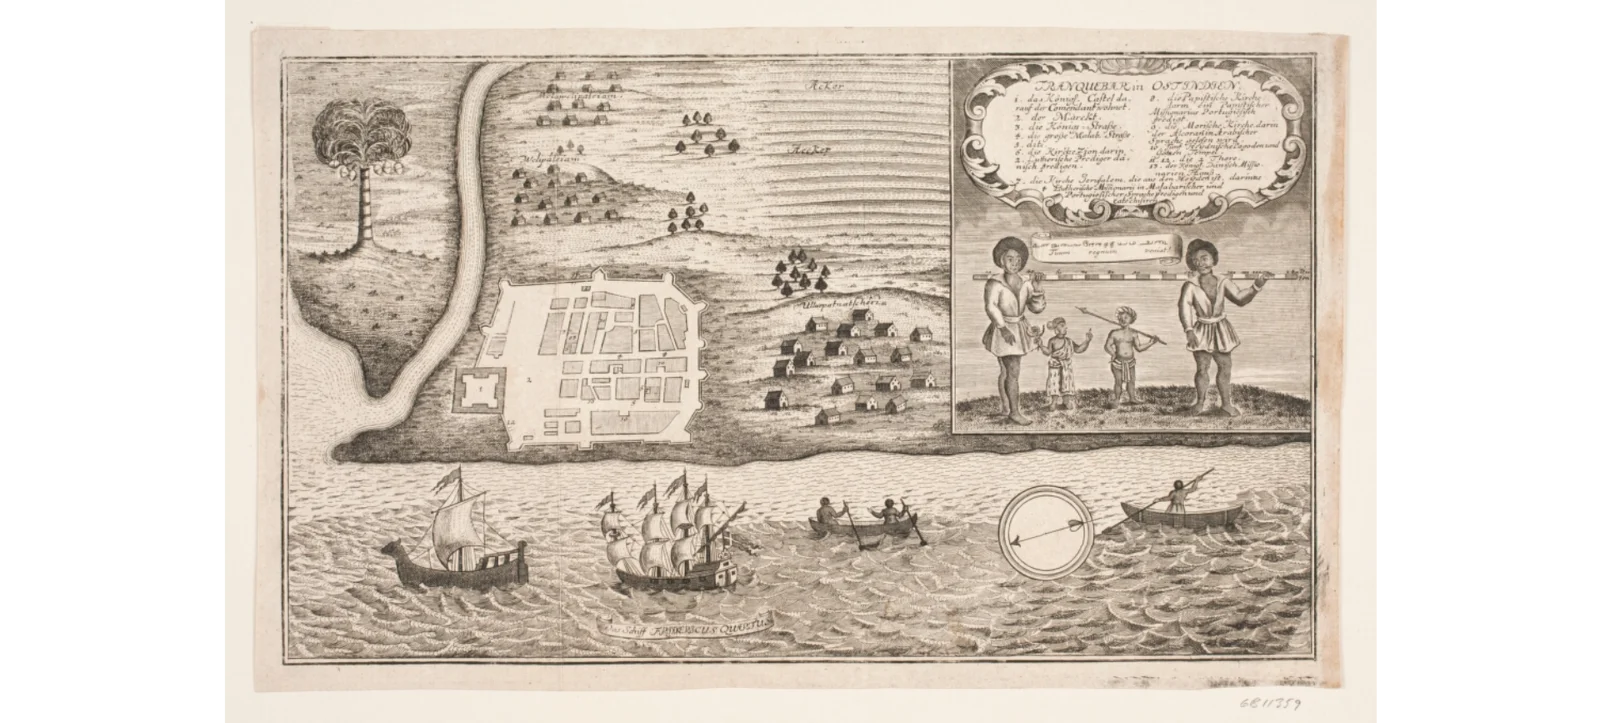 TRANQUEBAR in OSTINDIEN.
1. das Königl. Castel da,
rauf der Comendant wohnet.
2. der Marckt.
3. die Königs-Straße.
4. die große Malab. Straße
5. dito
6. die Kirche Zion darin
2. Lutherische Prediger dä-
nisch predigen.
7. die Kirche Jerusalem, die aus den Heyden ist, darinne
Lutherische Missionarii in Malabarischer und
Portugiesischer Sprache predigen und
catechisiren.
8. die Papistische Kirche
darin ein Papistischer
Missionarius Portugiesisch
predigt.
9. die Morische Kirche darin
der Alcoran in Arabischer
Sprache gelesen wird.
10. Pagoden und
Tempel.
11. 12. die 2 Thore.
13. der Königl. Dänisch. Missio-
narien
Acker
Acker
Welipaleiam
Ullupatnatscheria
regnum veniat!
1
2
12
Das Schiff FRIDERICUS QUARTUS
6811359